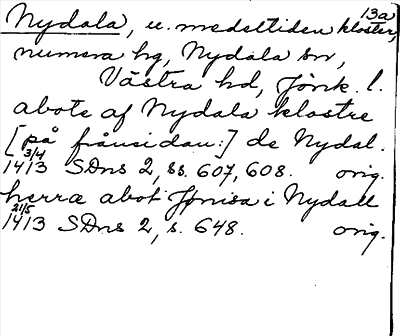 13a
Nydala, u. medeltiden kloster,
numera hg, Nydala sn,
Västra hd, Jönk. l.
abote af Nydala klostre
[på frånsidan:] de Nydal.
3/4
1413 SDns 2, ss. 607, 608. orig.
herra abot Jönisa i Nydall
21/5
1413 SDns 2, s. 648. orig.